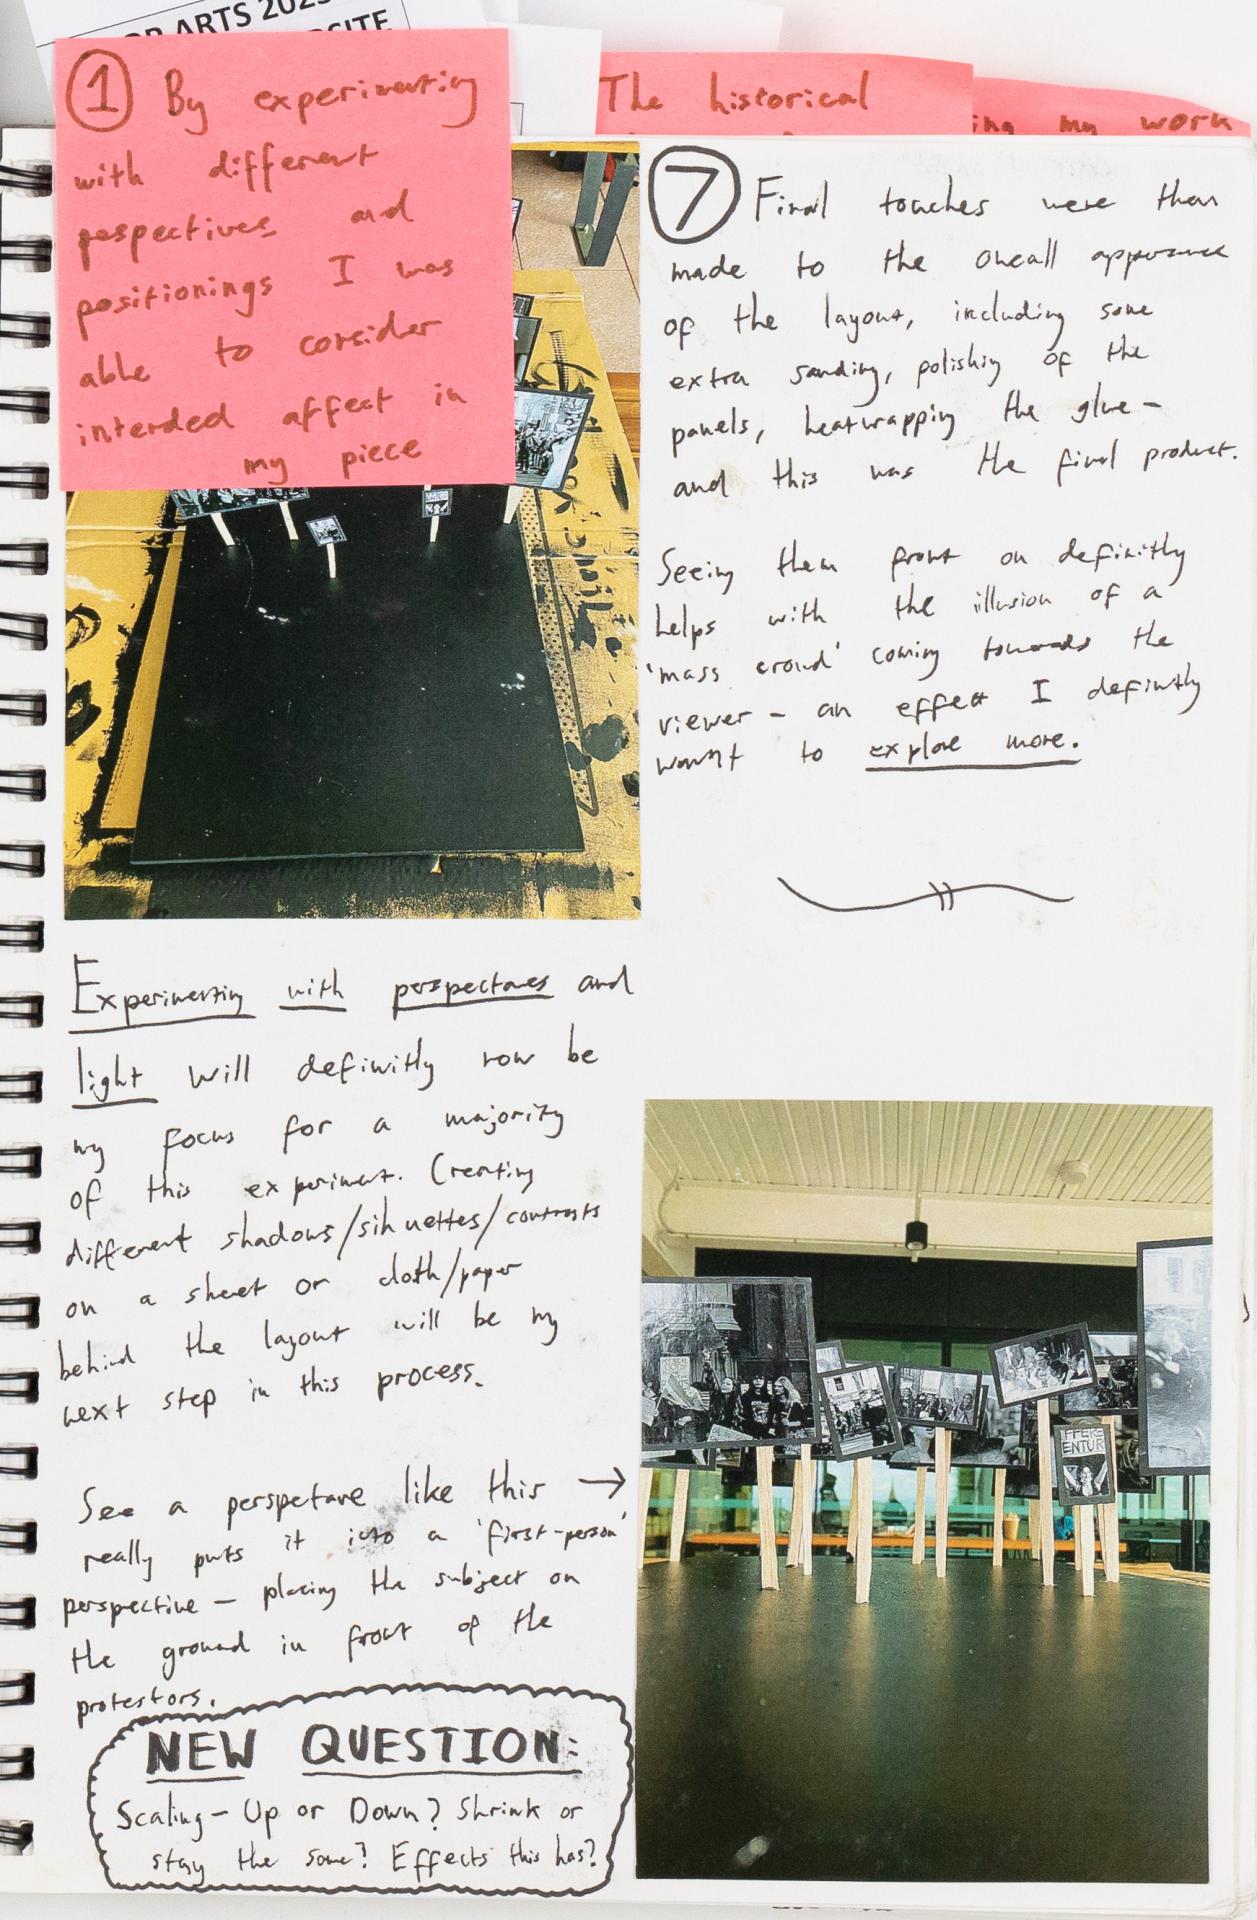 OR ARTS 202
OSITE
① By experimenting
with different
pespectives and
positionings I was
able to consider
intended affect in
my piece
The historical
ing my work
⑦ Final touches were then
made to the overall
of the layout, including some
extra sanding, polishing of the
panels, heatwrapping the glue -
and this was the final product.
Seeing them front on definitly
helps with the illusion of a
'mass crowd' coming towards the
viewer - an effect I definitly
want to explore more.
Experimenting with perspectives and
light will definitly now be
my focus for a majority
of this experiment. Creating
different shadows/silhuettes/contrasts
on a sheet or cloth/paper
behind the layout will be my
next step in this process.
See a perspective like this →
really puts it into a 'first-person'
perspective - placing the subject on
the ground in front of the
protestors.
NEW QUESTION:
Scaling - Up or Down? Shrink or
stay the same? Effects this has?
FFERE
ENTUR